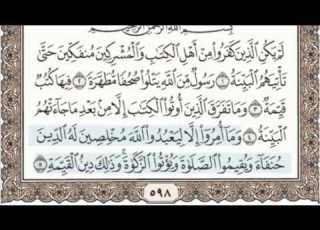 بِسْمِ اللَّهِ الرَّحْمَٰنِ الرَّحِيمِ
لَمْ يَكُنِ الَّذِينَ كَفَرُوا مِنْ أَهْلِ الْكِتَابِ وَالْمُشْرِكِينَ مُنفَكِّينَ حَتَّىٰ
تَأْتِيَهُمُ الْبَيِّنَةُ ١ رَسُولٌ مِّنَ اللَّهِ يَتْلُو صُحُفًا مُّطَهَّرَةً ٢ فِيهَا كُتُبٌ
قَيِّمَةٌ ٣ وَمَا تَفَرَّقَ الَّذِينَ أُوتُوا الْكِتَابَ إِلَّا مِن بَعْدِ مَا جَاءَتْهُمُ
الْبَيِّنَةُ ٤ وَمَا أُمِرُوا إِلَّا لِيَعْبُدُوا اللَّهَ مُخْلِصِينَ لَهُ الدِّينَ
حُنَفَاءَ وَيُقِيمُوا الصَّلَاةَ وَيُؤْتُوا الزَّكَاةَ وَذَٰلِكَ دِينُ الْقَيِّمَةِ ٥
٥٩٨